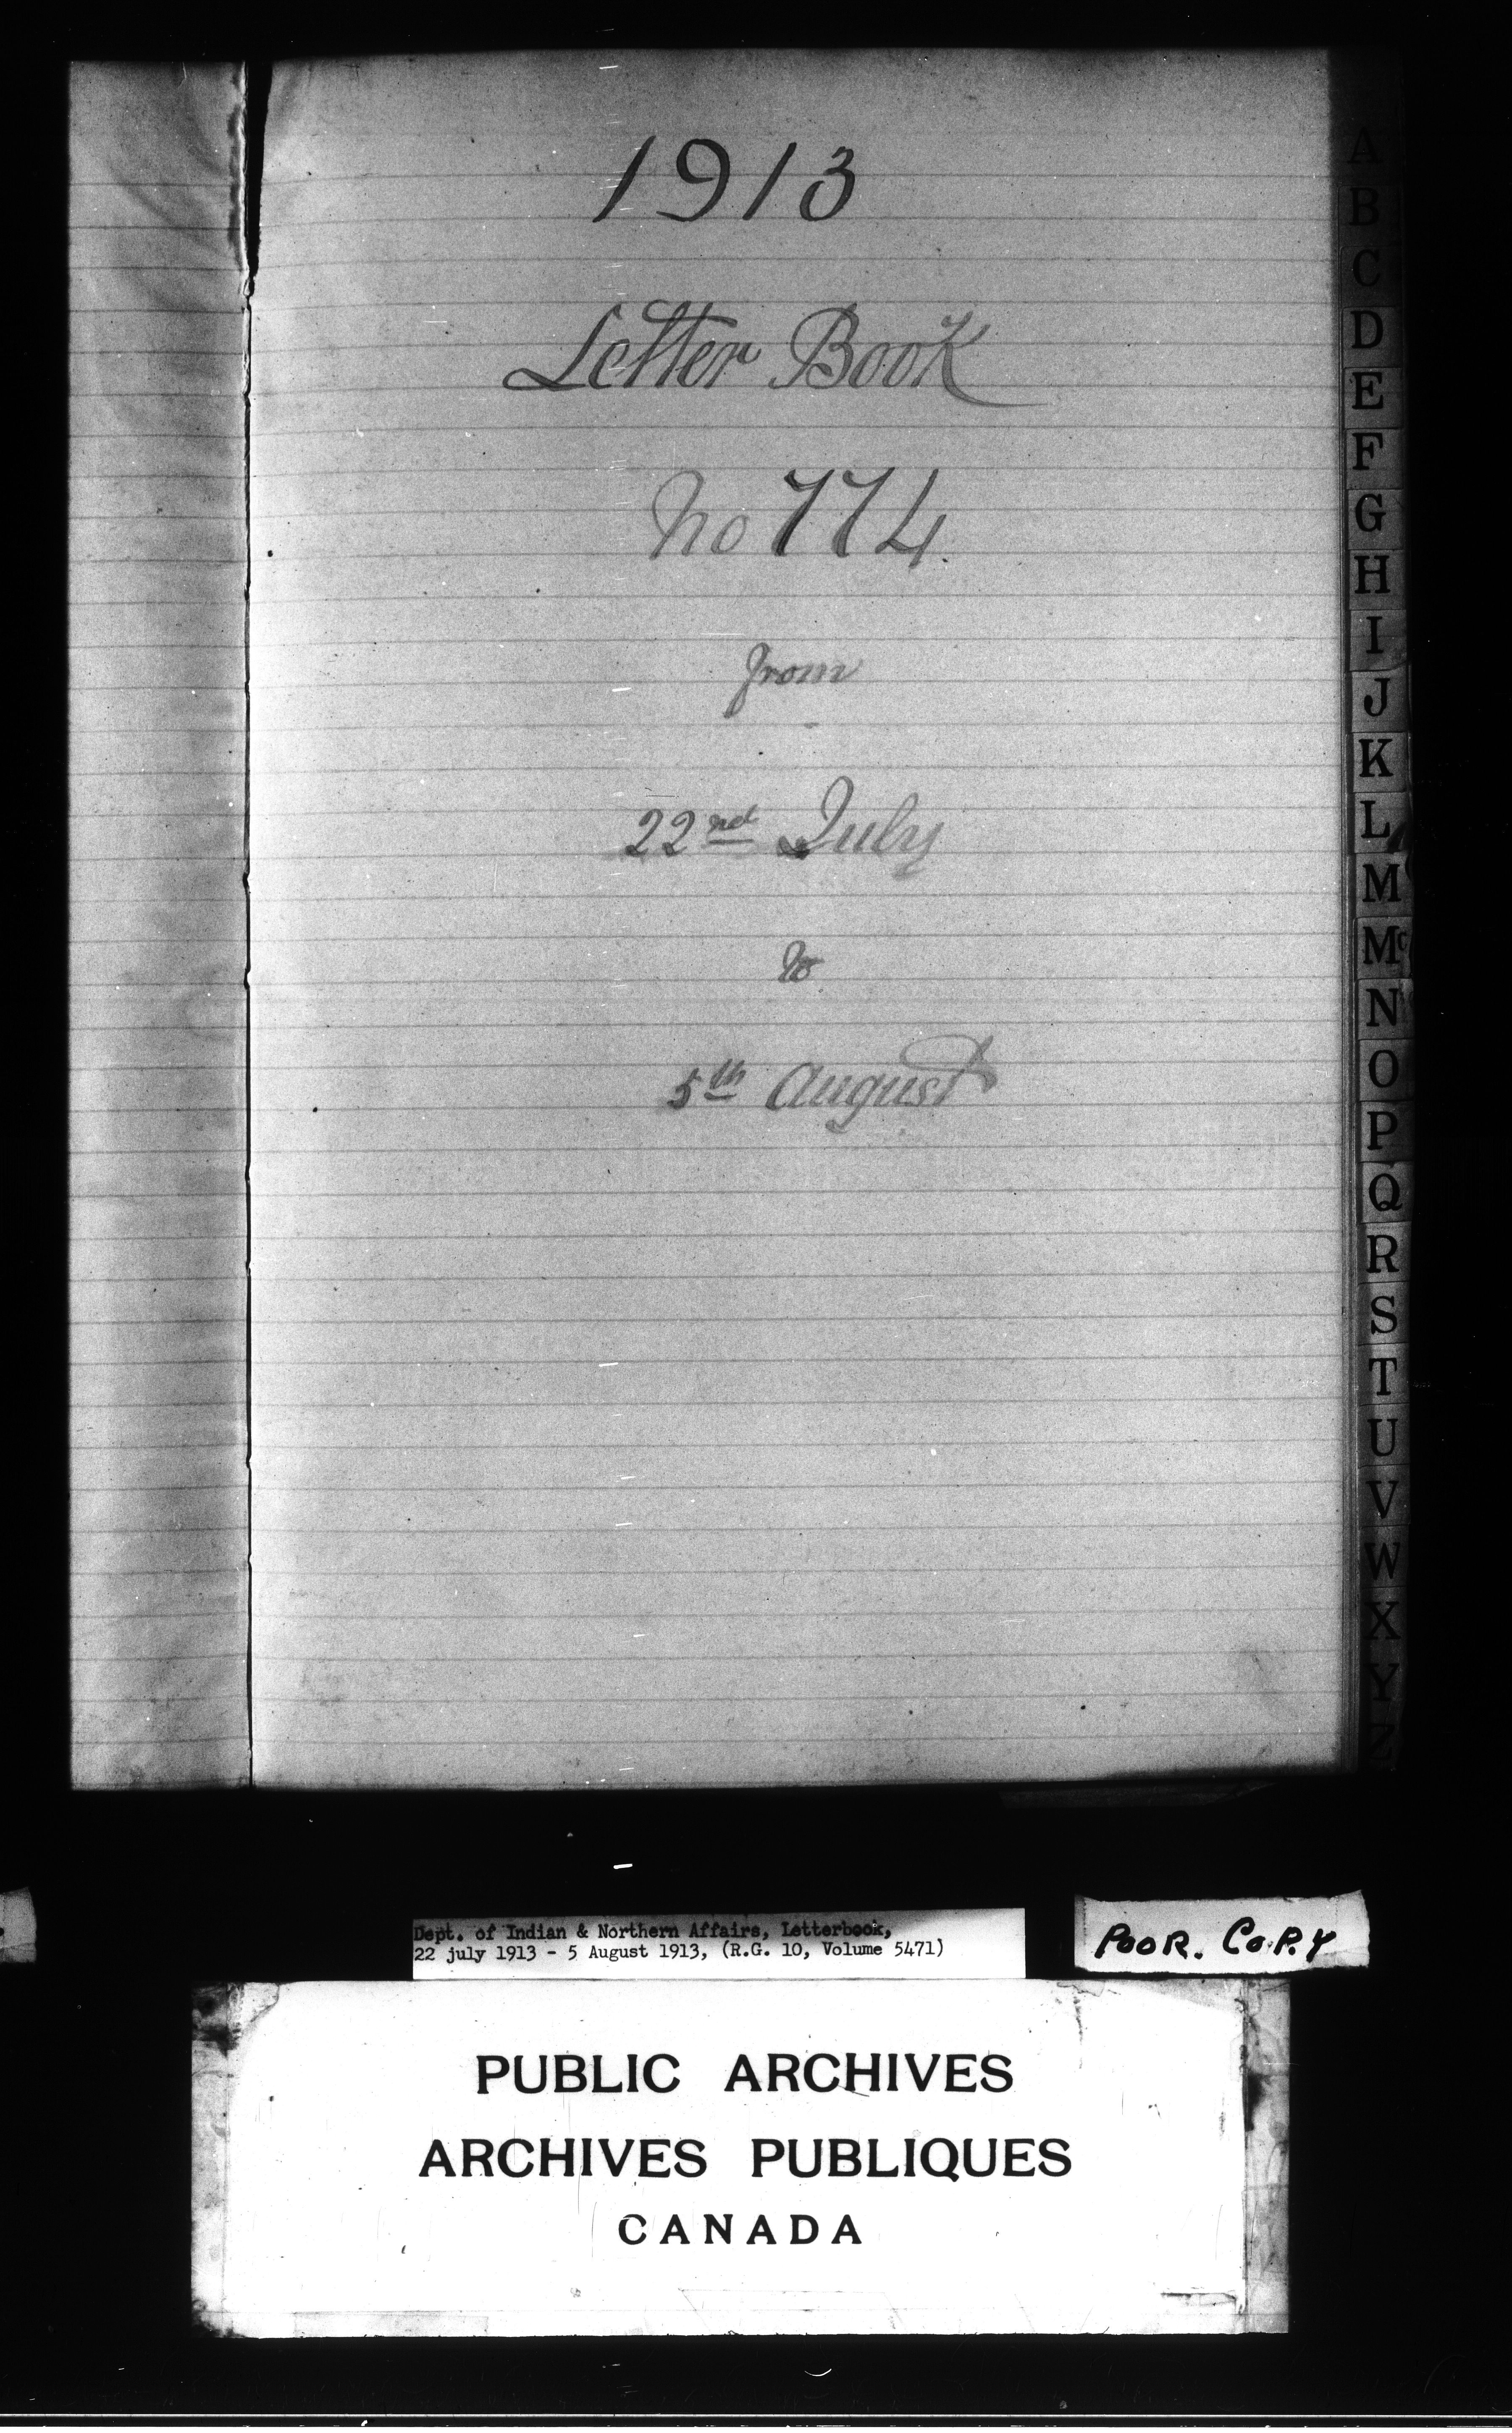 1913
Letter Book
No 774
from
22nd July
to
5th August
A
B
C
D
E
F
G
H
I
J
K
L
M
Mc
N
O
P
Q
R
S
T
U
V
W
X
Y
Z
Dept. of Indian & Northern Affairs, Letterbook,
22 july 1913 - 5 August 1913, (R.G. 10, Volume 5471)
POOR. COPY
PUBLIC ARCHIVES
ARCHIVES PUBLIQUES
CANADA